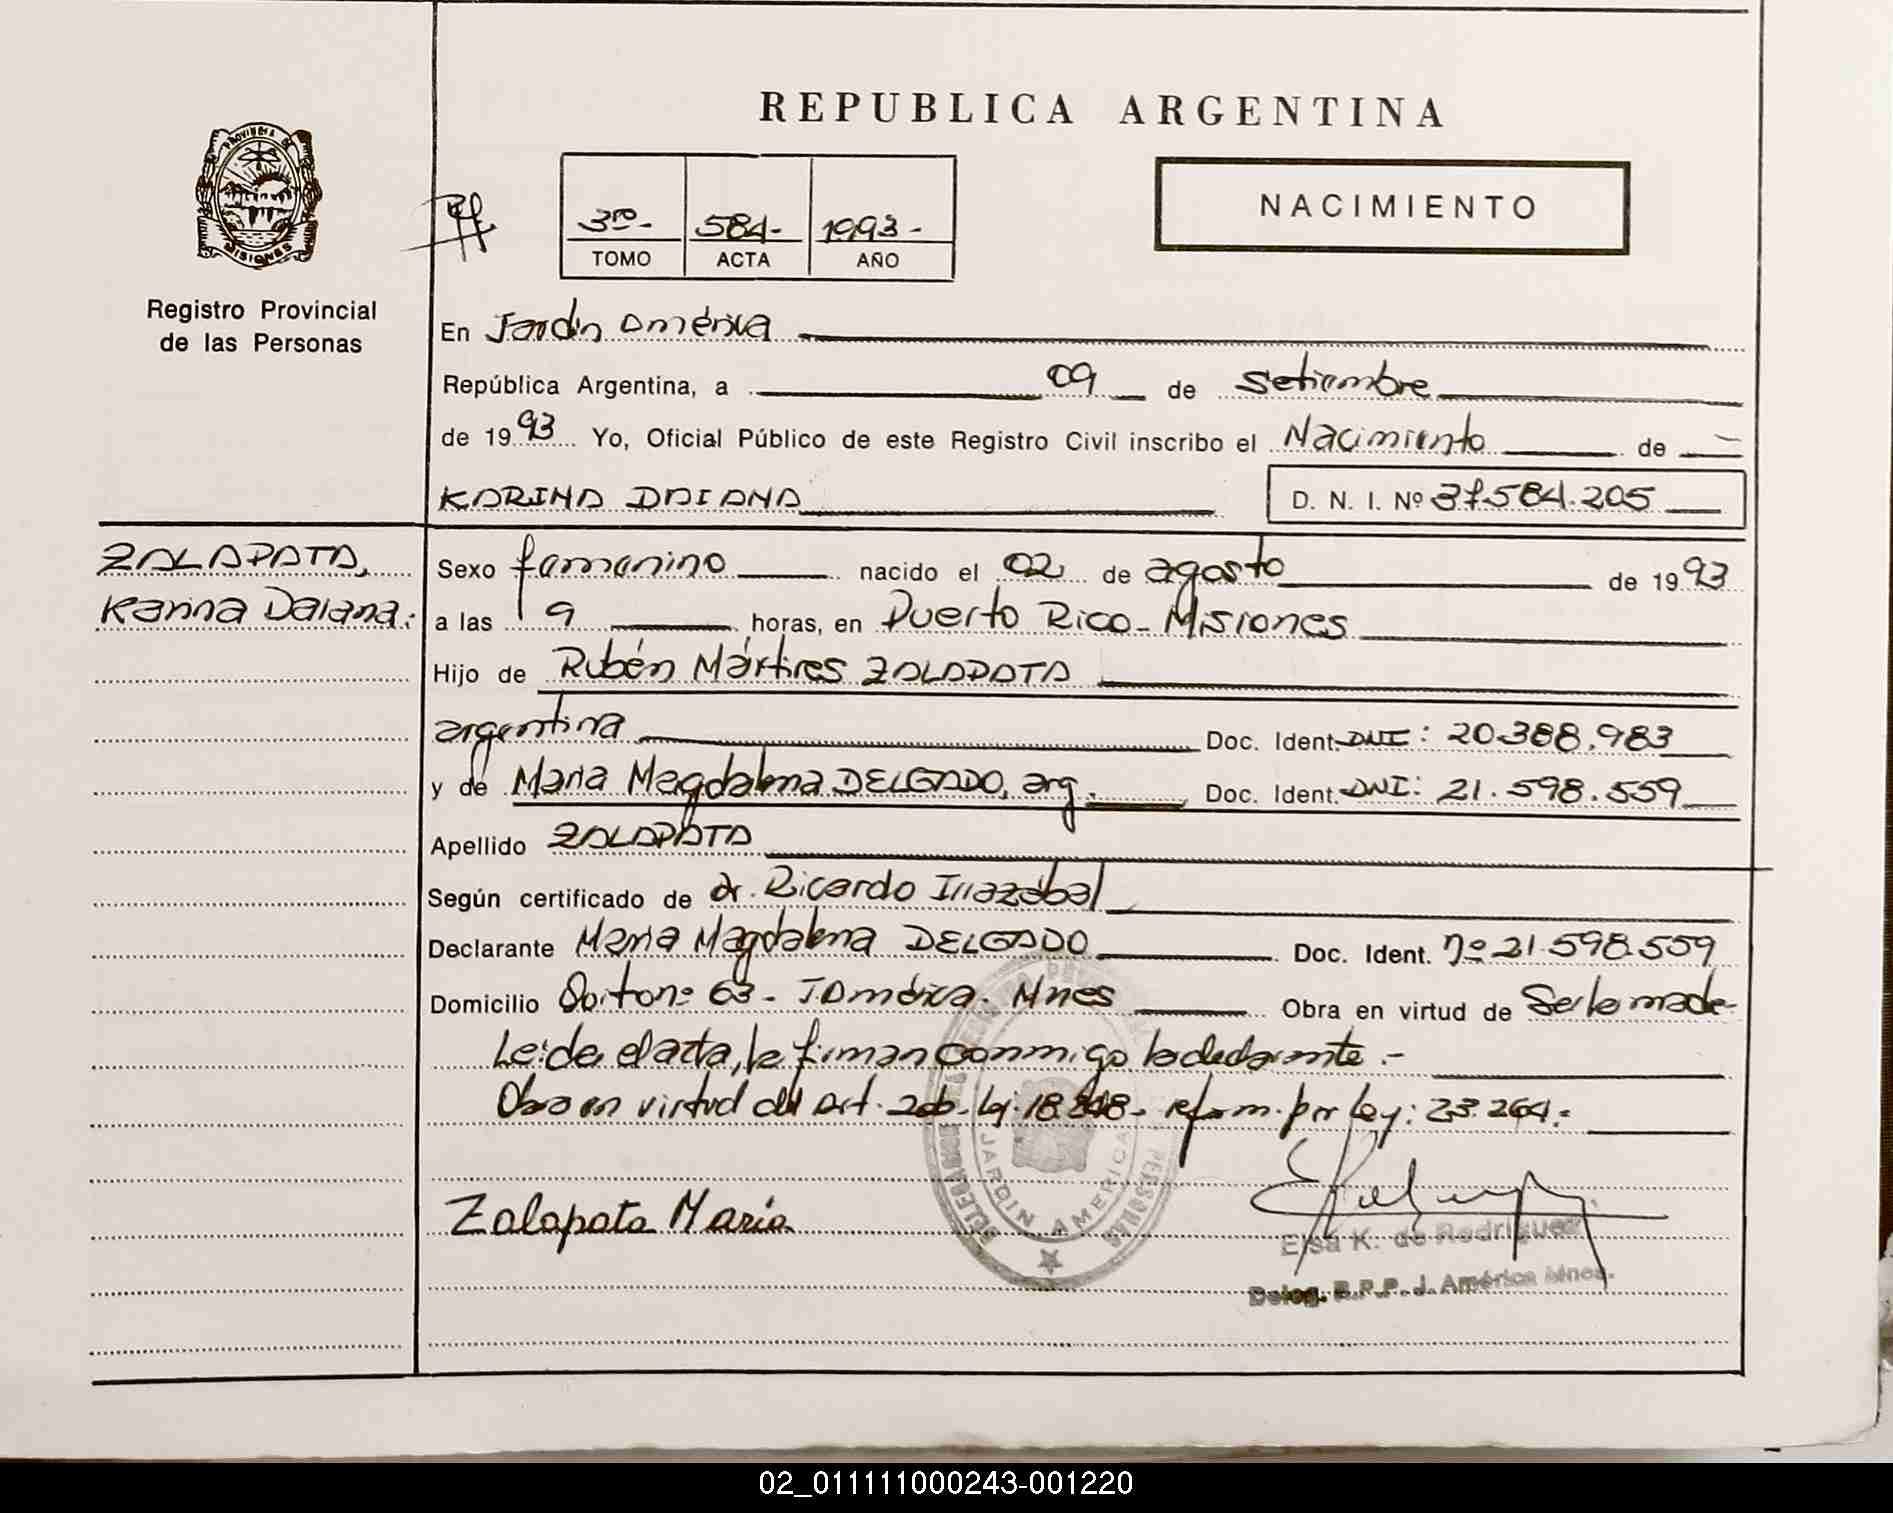 REPUBLICA ARGENTINA
PROVINCIA DE
MISIONES
Registro Provincial
de las Personas
3ro- 584- 1993-
TOMO ACTA AÑO
NACIMIENTO
En Jardín América
República Argentina, a 09 de Setiembre
de 1993 Yo, Oficial Público de este Registro Civil inscribo el Nacimiento de
KARINA DAIANA D. N. I. Nº 37.584.205
ZALAPATA,
Karina Daiana.
Sexo femenino nacido el 02 de agosto de 1993
a las 9 horas, en Puerto Rico - Misiones
Hijo de Rubén Mártires ZALAPATA
argentina Doc. Ident. DNI: 20.388.983
y de Maria Magdalena DELGADO, arg. Doc. Ident. DNI: 21.598.559
Apellido ZALAPATA
Según certificado de dr. Ricardo Irrazábal
Declarante Maria Magdalena DELGADO Doc. Ident. nº 21.598.559
Domicilio 63 - J América - Mnes Obra en virtud de Ser la madre-
Leida el acta, la firman conmigo la declarante.-
Obra en virtud del art. Ley. 18. reform. por Ley: 23.264.-
JARDIN AMERICA
Zalapata Maria
Elsa K. de Rodriguez
Deleg. R.P.P. J. América Mnes.
02_011111000243-001220